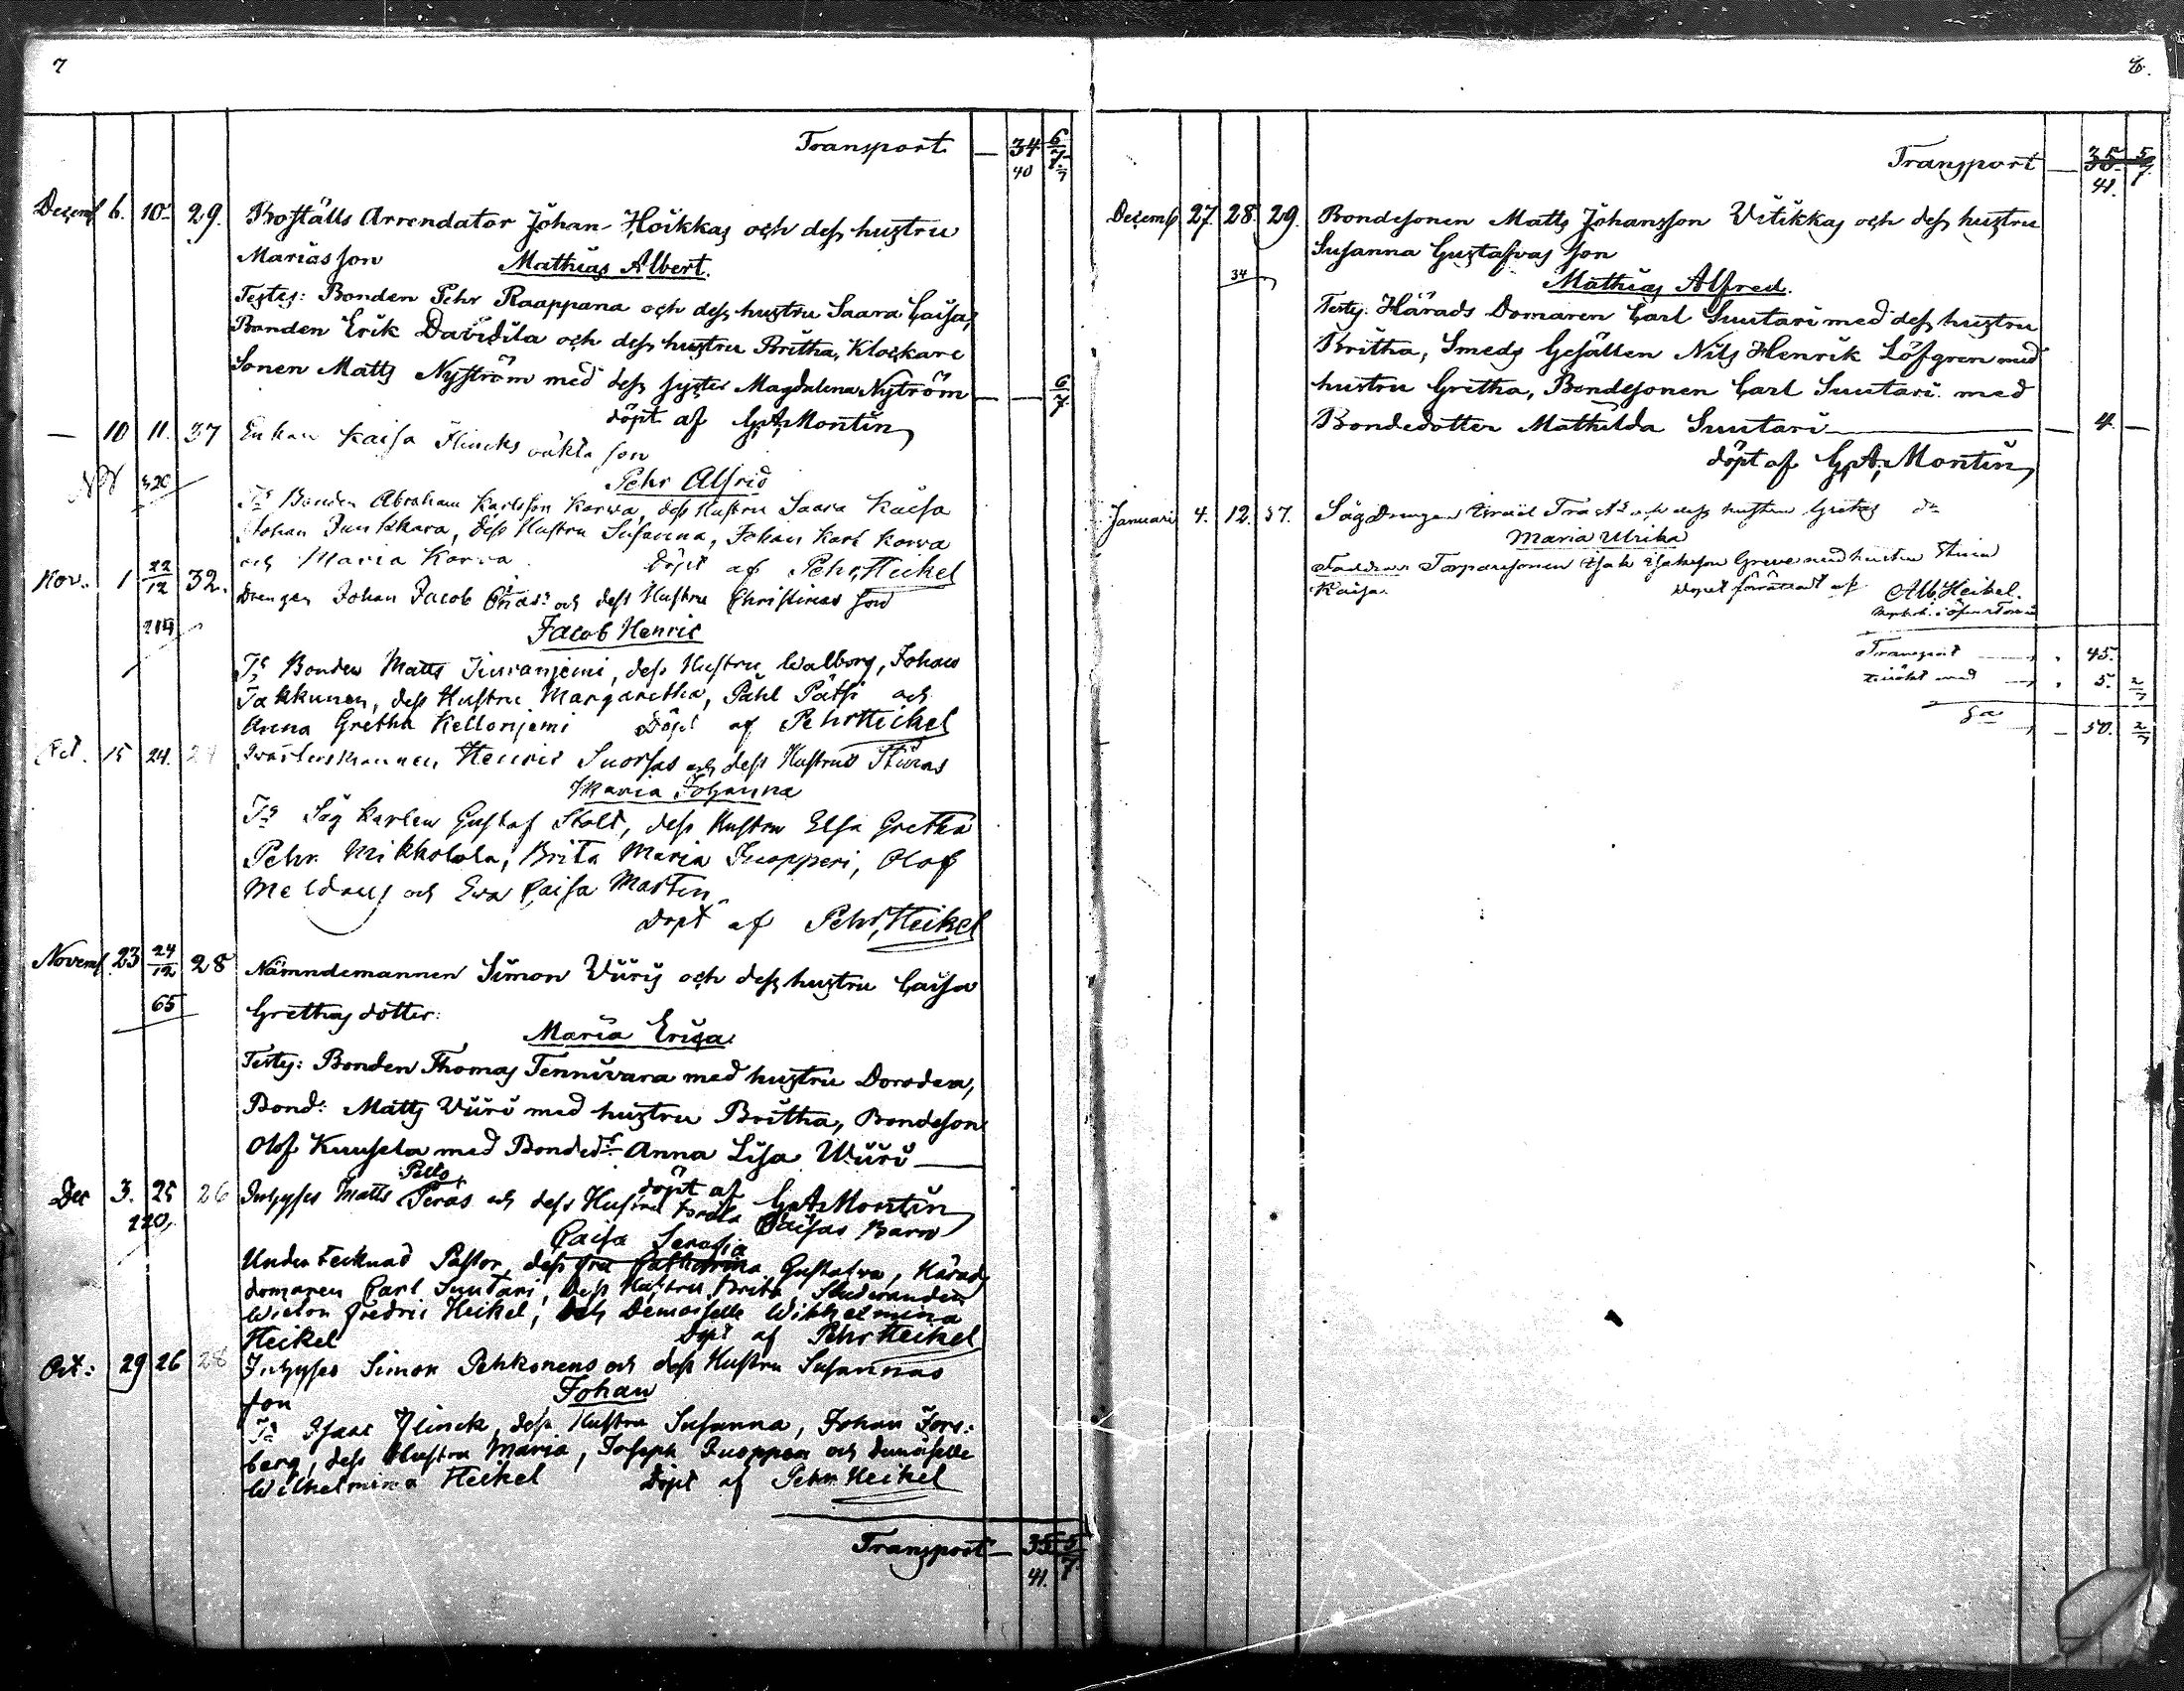 7
Transport — 34 6/7
40
Decemb 6. 10 29. Boställs Arrendator Johan Hoikkas och dess hustru
Marias son Mathias Albert.
Testes: Bonden Pehr Raappana och dess hustru Saara Caisa,
Bonden Erik Davidila och dess hustru Britha, Klockare
Sonen Matts Nyström med dess syster Magdalena Nyström — — 6/7
döpt af G. A. Montin
— 10 11. 37 Enkan Kaisa Flincks oäkta son
320 Pehr Alfrid
Ts Bonden Abraham Karlsson Korwa, dess Hustru Saara Kaisa
Johan Junkkara, dess Hustru Susanna, Johan Karl Korwa
och Maria Korva Döpt af Pehr Heikel
Nov. 1 22/12 32. Drengen Johan Jacob och dess Hustru Christinas son
219 Jacob Henric
Ts Bonden Matts Jiuvanjemi, dess Hustru Walborg, Johan
Takkunen, dess Hustru Margaretha, Påhl Pätsi och
Anna Gretha Kellonjemi Döpt af Pehr Heikel
Oct. 15 24. 24 Henric Suorsas och dess Hustrus Stinas
Maria Johanna
Ts Såg Karlen Gustaf Stolt, dess Hustru Elsa Gretha
Pehr Mikkolola, Brita Maria Kuopperi, Olof
och Ewa Caisa Martin
Döpt af Pehr Heikel
Novemb 23 24/12 28 Nämndemannen Simon Viiris och dess hustru Caisa
65 Grethas dotter:
Maria Erica.
Testes: Bonden Thomas Tennivara med hustru Dorodea,
Bond: Matts Viiri med hustru Britha, Bondeson
Olof Kuusela med Bonded:r Anna Lisa Wiiri —
döpt af G. A. Montin
Pello
Dec 3. 25 26 Inhyses Matts Peras och dess Hustru Brita Caisas Barn
220. Caisa Serafia
Undertecknad Pastor, dess fru Catharina Gustafva, Härads
domaren Carl Suutari, Dess Hustru Brita, Studeranden
Victor Fredric Heikel, och Demoiselle Wilhelmina
Heikel Döpt af Pehr Heikel
Oct: 29 26 28 Inhyses Simon Pehkonens och dess Hustru Susannas
son Johan
Ts Isaac Flinck, dess Hustru Susanna, Johan Fors:
berg, dess Hustru Maria, Joseph Kuoppa och demoiselle
Wilhelmina Heikel Döpt af Pehr Heikel
Transport — 35 5/7
41.
8.
Transport — 35 5/7
41.
Decemb 27. 28. 29. Bondesonen Matts Johansson Vitikkas och dess hustru
Susanna Gustafvas son
34 Mathias Alfred.
Testes. Härads Domaren Carl Suutari med dess hustru
Britha, Smeds Gesällen Nils Henrik Löfgren med
hustru Gretha, Bondesonen Carl Suutari med
Bondedotter Mathilda Suutari — — 4. —
döpt af G. A. Montin
Januari 4. 12. 37. Såg Drengen och dess hustru Gretas dr
Maria Ulrika
Faddrar Torparesonen Isak Isaksson Greve med hustru Stina
Kaisa. Dopet förrättadt af Alb. Heikel.
Transport — 45.
tillökt med — 5. 2/7
Sa — 50. 2/7